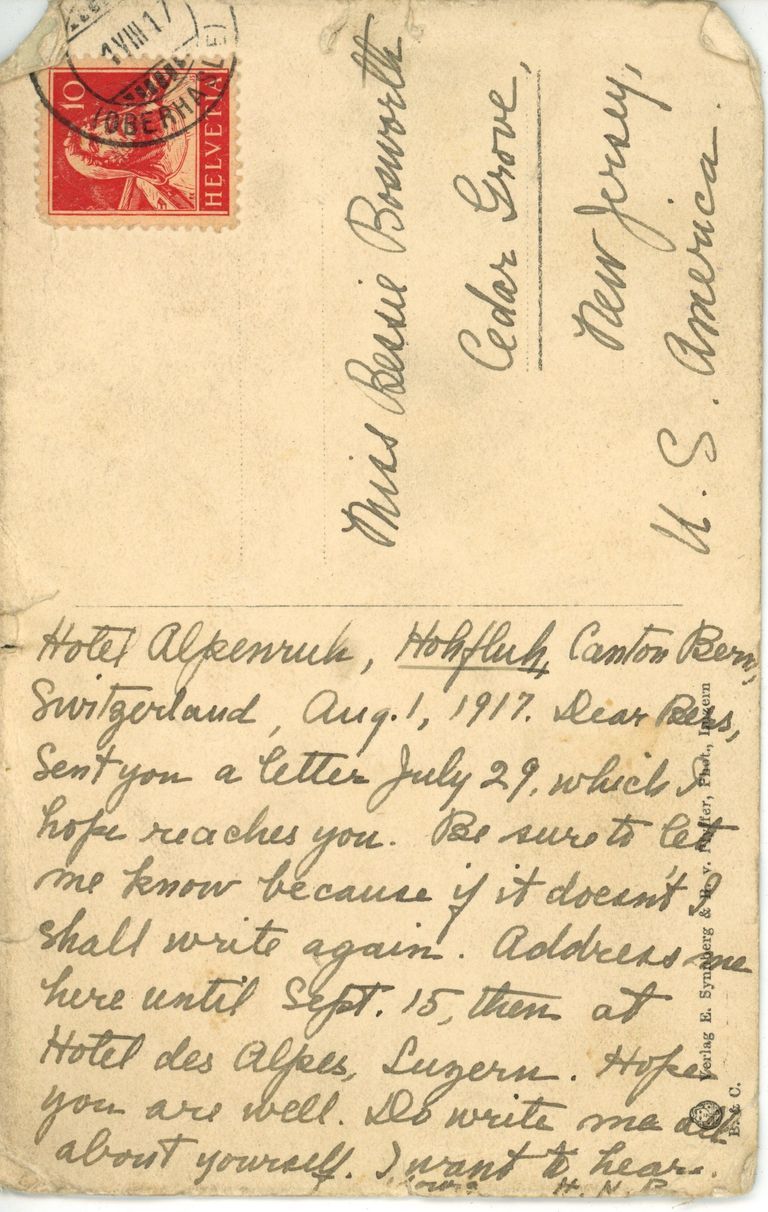 1 VIII 17
(OBERHASLE)
10
HELVETIA
Miss Bessie Bosworth
Cedar Grove,
New Jersey,
U. S. America.
Hotel Alpenruh, Hohfluh, Canton Bern,
Switzerland, Aug. 1, 1917. Dear Bess,
Sent you a letter July 29, which I
hope reaches you. Be sure to let
me know because if it doesn't I
shall write again. Address me
here until Sept. 15, then at
Hotel des Alpes, Luzern. Hope
you are well. Do write me all
about yourself. I want to hear.
H. N. P.
Verlag E. Synnberg & R. v. Pfyffer, Phot., Luzern
B. & C.